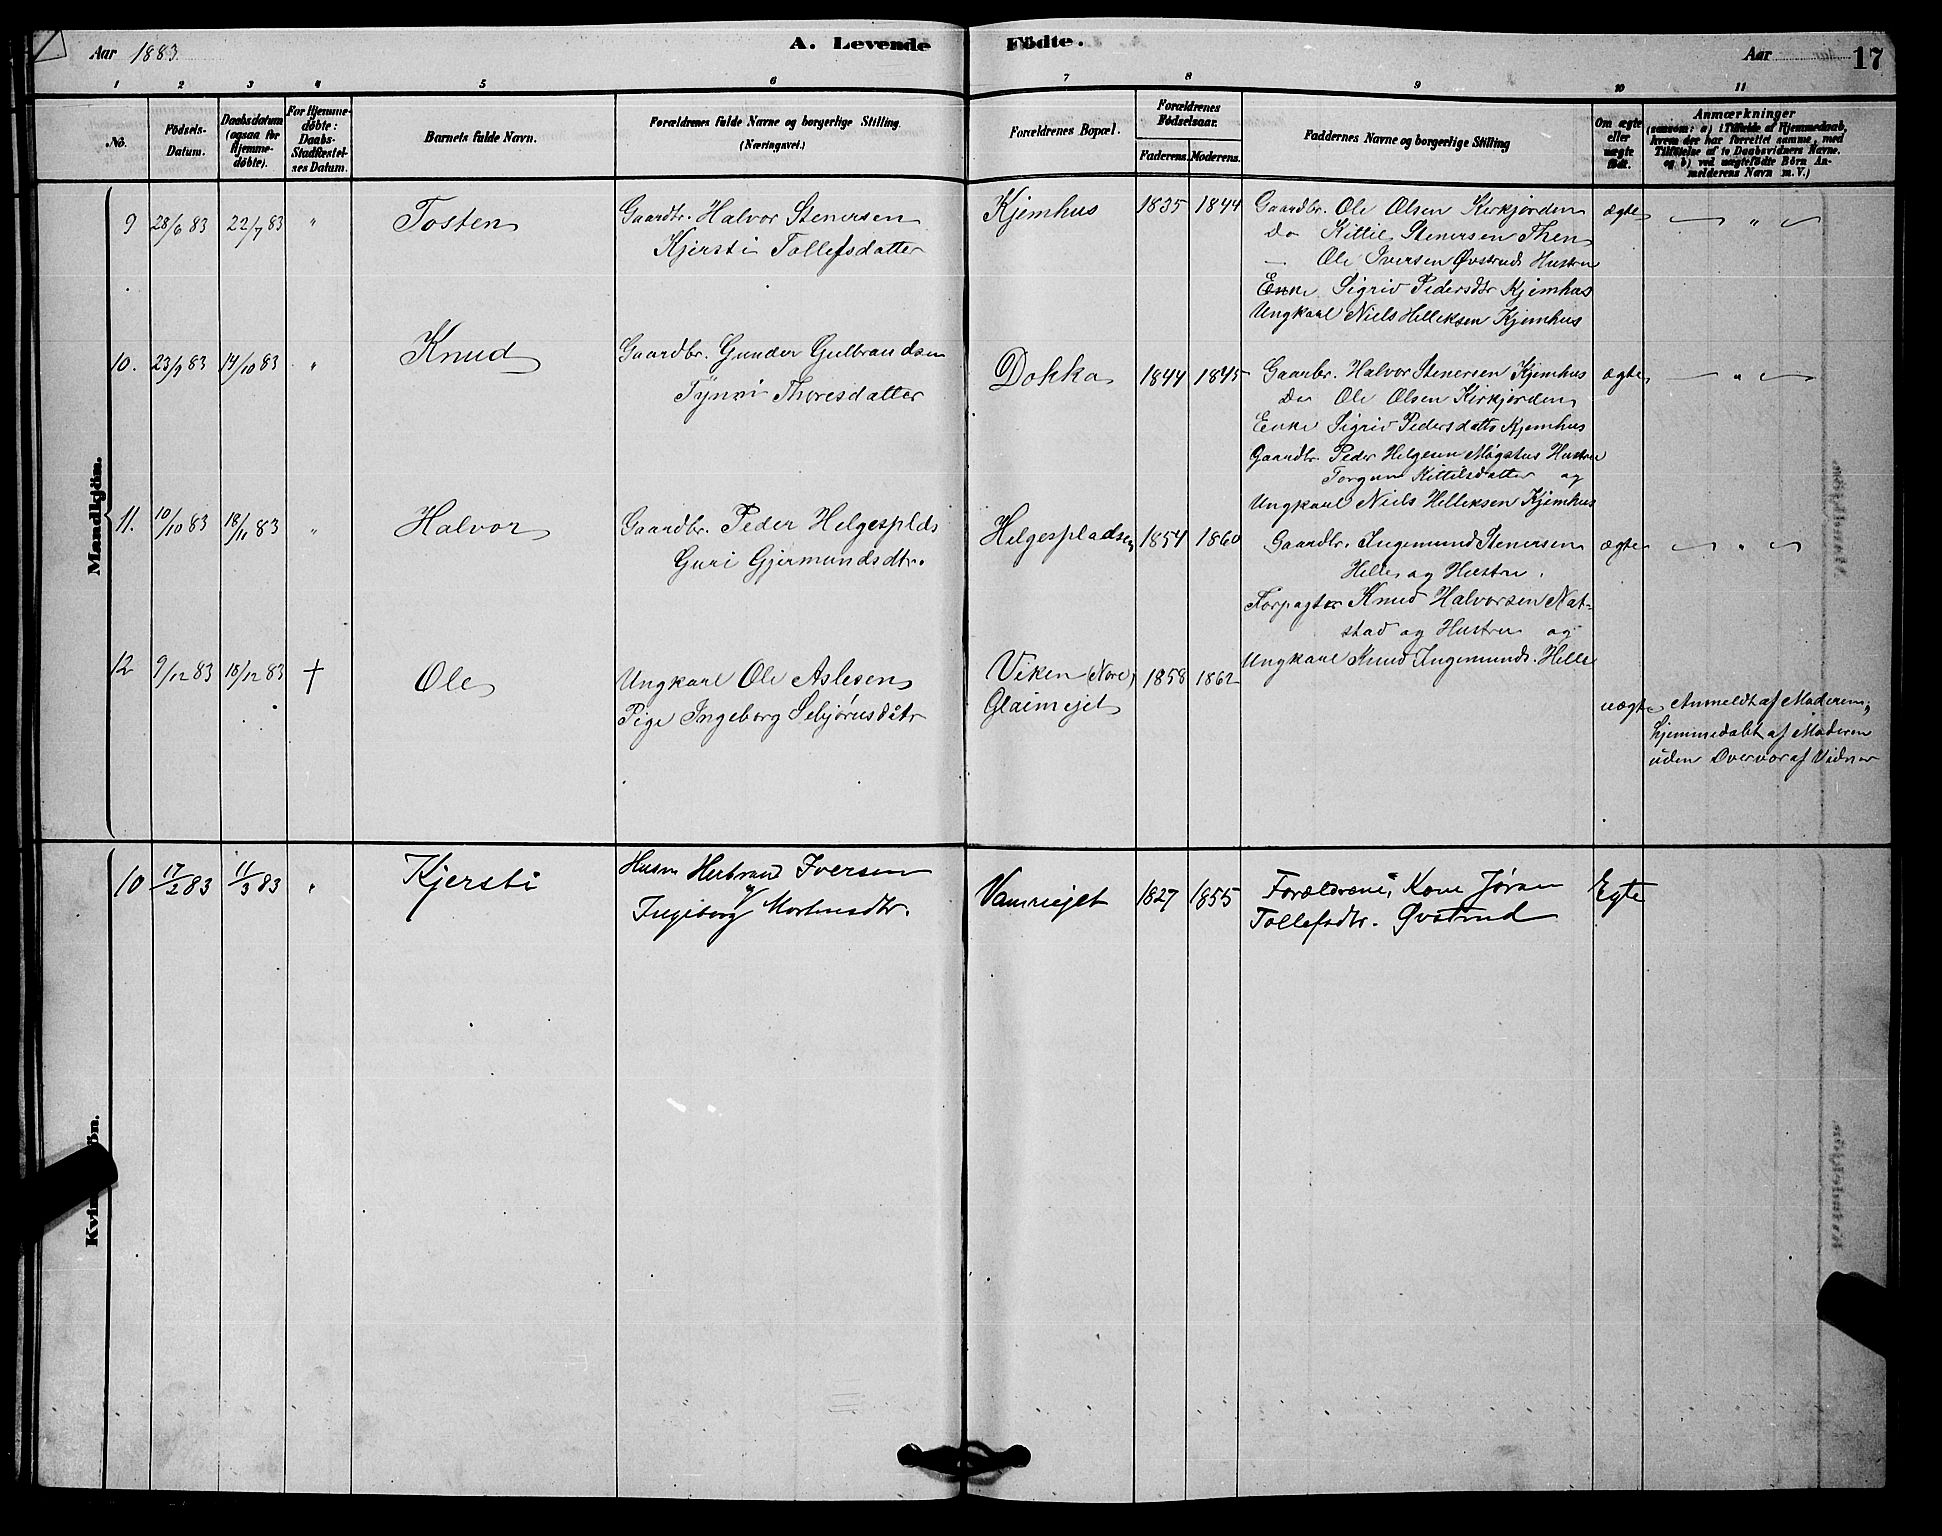 Aar 1883. A. Levende Födte. Aar 17
1 2 3 4 5 6 7 8 9 10 11
No.
Födsels-Datum.
Daabsdatum (ogsaa for Hjemme-döbte).
For Hjemme-döbte: Daabs-Stadfæstel-ses Datum.
Barnets fulde Navn.
Forældrenes fulde Navne og borgerlige Stilling
(Næringsvei.)
Forældrenes Bopæl.
Forældrenes Födselsaar.
Faderens. Moderens.
Faddernes Navne og borgerlige Stilling
Om ægte eller uægte födt.
Anmærkninger
(saasom: a) i Tilfælde af Hjemmedaab,
hvem der har forrettet samme, med
Tilföielse af to Daabsvidners Navne.
og b) ved uægtefödte Börn An-
melderens Navn m. V.)
Mandkjön.
9 28/6 83 22/7 83 " Tosten Gaardbr. Halvor Stenersen Kjemhus 1835 1844 Gaardbr. Ole Olsen Kirkjorden ægte "
Kjersti Tollefsdatter Do Kittil Stenersen Then
— Ole Iversen Øvstrud Hustru
Enke Sigrid Pedersdtr Kjemhus
Ungkarl Niels Helliksen Kjemhus
10. 23/9 83 14/10 83 " Knud Gaardbr. Gunder Gulbrandsen Dokka 1844 1845 Gaarbr. Halvor Stenersen Kjemhus ægte "
Thoresdatter Do Ole Olsen Kirkjorden
Enke Sigrid Pedersdatter Kjemhus
Gaardbr. Peder Helgesen Møgstus Hustru
Torgun Kittilsdatter og
Ungkarl Niels Helliksen Kjemhus
11. 10/10 83 18/11 83 " Halvor Gaardbr. Peder Helgesplds Helgespladsen 1854 1860 Gaardbr. Ingemund Stenersen ægte "
Guri Gjermundsdtr. Helle og Hustru.
Forpagter Knud Halvorsen Nat-
stad og Hustru og
Ungkarl Knud Ingemunds. Helle
12 9/12 83 10/12 83 † Ole Ungkarl Ole Aslesen Viken (Nore) 1858 1862
Pige Ingeborg Sebjørnsdatr Glaimejet uægte Anmeldt af Moderen;
hjemmedøbt af Moderen
uden Overvær af Vidner
Kvi ön.
10 17/2 83 11/3 83 " Kjersti Husm Herbrand Iversen Vamriejet 1827 1855 Forældrene, Kone Jøran Egte
og Ingeborg Mortensdtr. Tollefsdtr. Øvstrud